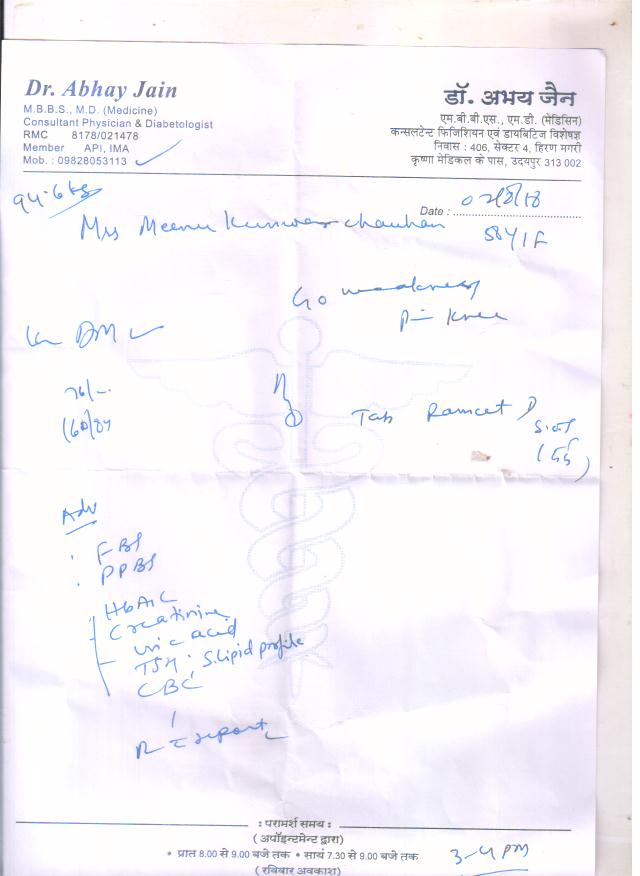 Dr. Abhay Jain
M.B.B.S., M.D. (Medicine)
Consultant Physician & Diabetologist
RMC 8178/021478
Member API, IMA
Mob. : 09828053113
डॉ. अभय जैन
एम.बी.बी.एस., एम.डी. (मेडिसिन)
कन्सलटेन्ट फिजिशियन एवं डायबिटिज विशेषज्ञ
निवास : 406, सेक्टर 4, हिरण मगरी
कृष्णा मेडिकल के पास, उदयपुर 313 002
94.6 kg
Date :
Mrs Meenu Kunwar Chauhan
58Y/F
weakness
Knee
DM
76/-
160/84
Tab Ramcet
Adv
FBS
PPBS
HbA1C
Creatinine
uric acid
TSH. S. Lipid profile
CBC
report
: परामर्श समय :
( अपॉइन्टमेन्ट द्वारा )
• प्रात 8.00 से 9.00 बजे तक • सायं 7.30 से 9.00 बजे तक
( रविवार अवकाश )
3-4 PM